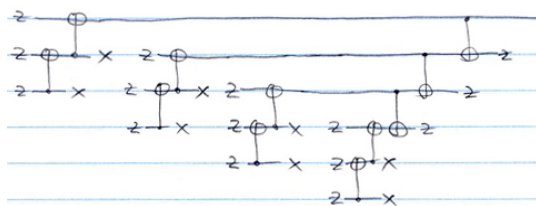 Z
Z X Z Z
Z X Z X Z Z
Z X Z X Z Z
Z X Z X
Z X